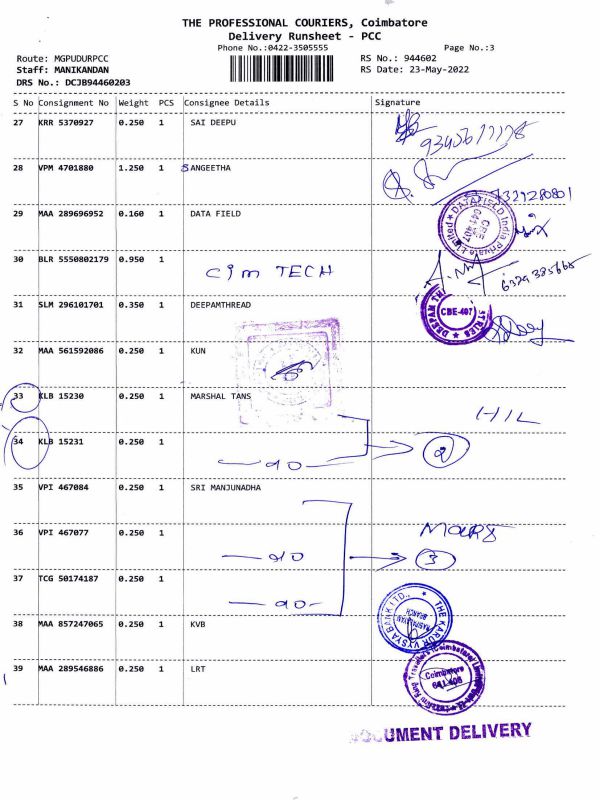 THE PROFESSIONAL COURIERS, Coimbatore
Delivery Runsheet - PCC
Phone No.:0422-3505555
Page No.:3
Route: MGPUDURPCC
RS No.: 944602
Staff: MANIKANDAN
RS Date: 23-May-2022
DRS No.: DCJB94460203
S No Consignment No Weight PCS Consignee Details Signature
27 KRR 5370927 0.250 1 SAI DEEPU
28 VPM 4701880 1.250 1 SANGEETHA
29 MAA 289696952 0.160 1 DATA FIELD
DATAFIELD India Private Limited
CBE
641 407
30 BLR 5550802179 0.950 1 CIM TECH
31 SLM 296101701 0.350 1 DEEPAMTHREAD
CBE-407
32 MAA 561592086 0.250 1 KUN
33 KLB 15230 0.250 1 MARSHAL TANS
HIL
34 KLB 15231 0.250 1 2
35 VPI 467084 0.250 1 SRI MANJUNADHA
36 VPI 467077 0.250 1 3
37 TCG 50174187 0.250 1
38 MAA 857247065 0.250 1 KVB
THE KARUR VYSYA BANK LTD.,
BRANCH
39 MAA 289546886 0.250 1 LRT
Coimbatore
DOCUMENT DELIVERY